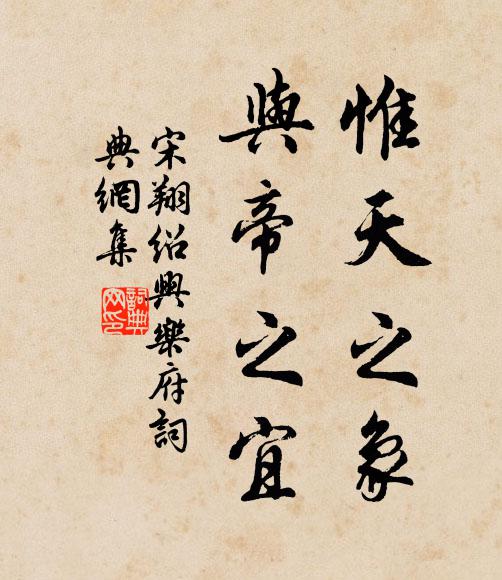 惟天之象
與帝之宜
宋翔紹興樂府詞
典網集
詞典
网印